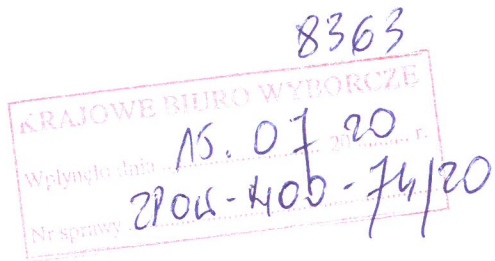 8363
KRAJOWE BIURO WYBORCZE
Wpłynęło dnia 15.07 2020 r.
Nr sprawy ZPOW-400-74/20